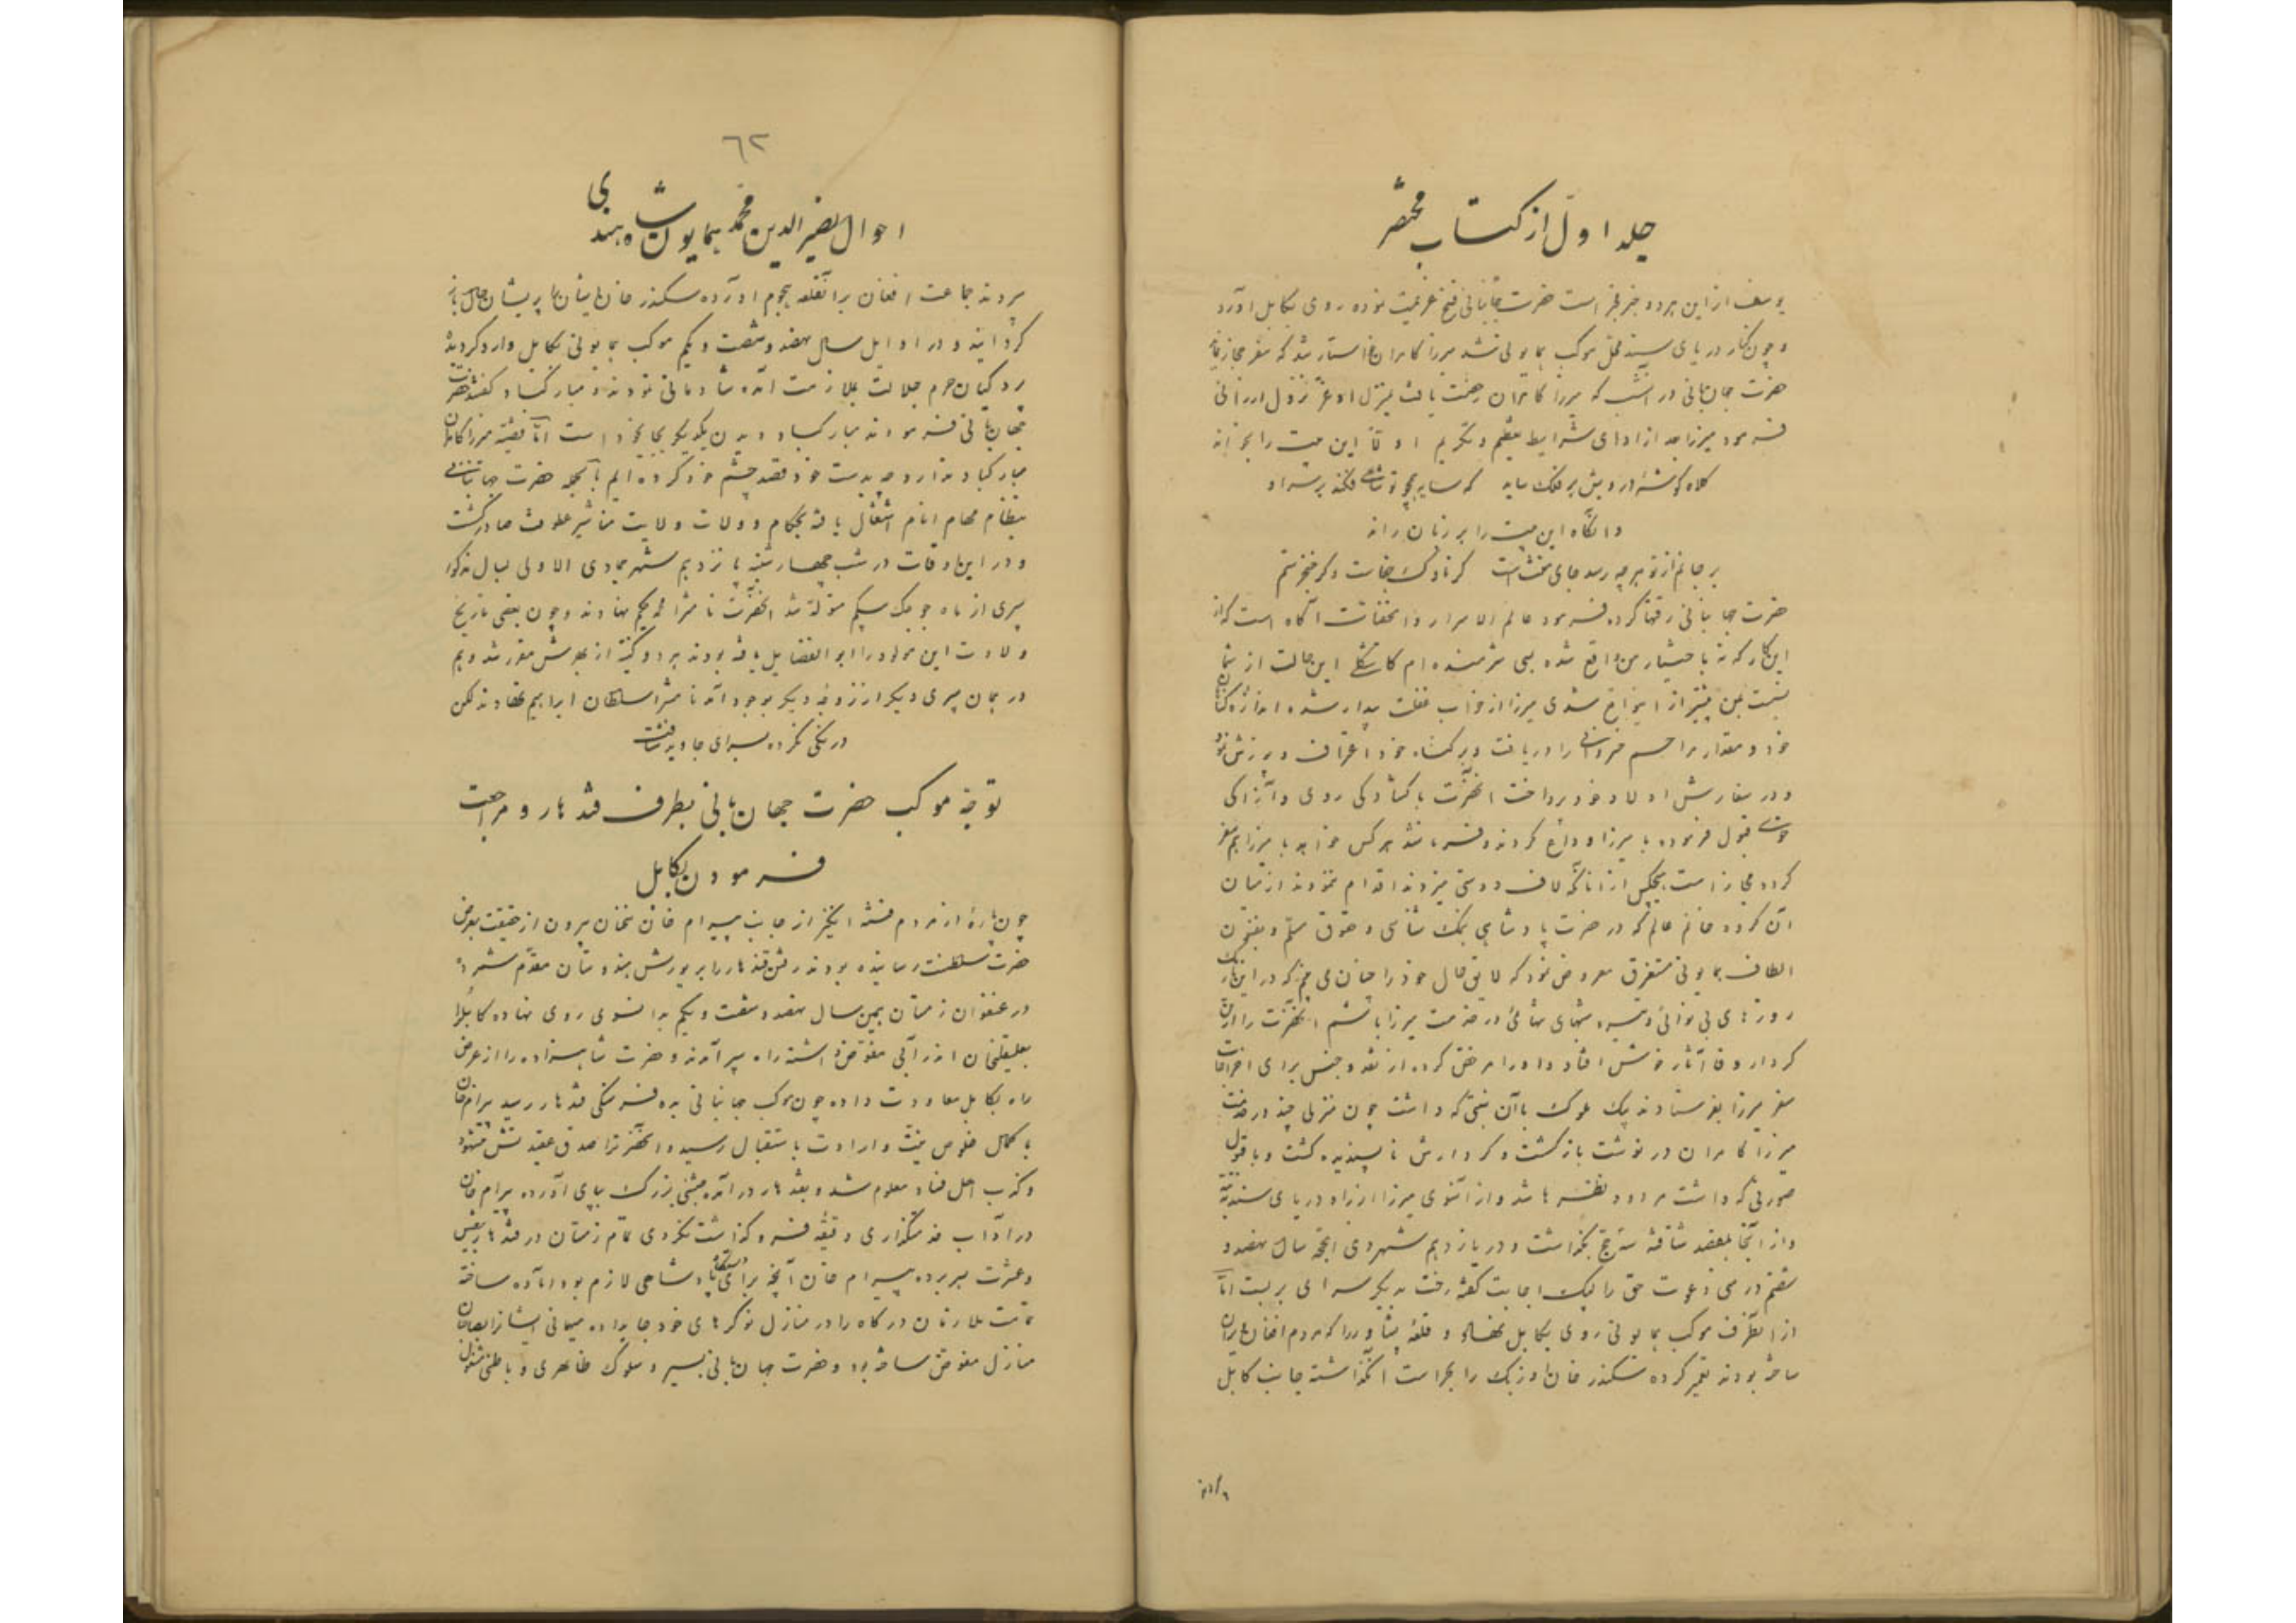 جلد اول از کتاب مختصر
یوسف ازاین هردو خبر است حضرت جهانبانی فسخ عزیمت نموده روی بکابل آورد
و چون کنار دریای سند محل موکب همایونی شد میرزا کامران خواستار شد که سفر حجاز نماید
حضرت جهان بانی در آن شب که میرزا کامران رخصت یافت بمنزل او عز نزول ارزانی
فرمود میرزا بعد از ادای شرایط تعظیم و تکریم این بیت را بخواند
کلاه گوشه درویش بر فلک ساید که سایه همچو تو شاهی فکند بر سر او
وانگاه این بیت را بر زبان راند
بر جانم از تو هرچه رسد جای منت است گر ناوک جفاست و گر خنجر ستم
حضرت جهانبانی رقتها کرده فرمود عالم الاسرار والخفیات آگاه است که از
این کار که نه باختیار من واقع شده بسی شرمنده ام کاشکی این حالت از شما
نسبت بمن پیشتر از این واقع شدی میرزا از خواب غفلت بیدار شده اندازه گناه
خود و مقدار مراحم خسروانی را دریافت و بر گناه خود اعتراف و پوزش نمود
و در سفارش اولاد خود پرداخت آنحضرت با گشادگی روی و آزادگی
خوی قبول فرموده با میرزا وداع کردند و فرمانشد هر کس خواهد با میرزا هم سفر
گردد مجاز است هیچکس از آنانکه لاف دوستی میزدند اقدام ننمودند از میان
آن گروه خانم عالم که در حضرت پادشاهی بنمک شناسی و حقوق مسلم و بفنون
الطاف همایونی مستغرق معروض نمود که لایق حال خود را چنان می بینم که در این تاریک
روزهای بی نوائی و تیره شبهای تنهائی در خدمت میرزا باشم آنحضرت را این
کردار وفا آثار خوش افتاد و او را مرخص کرده از نقد و جنس برای اخراجات
سفر میرزا بفرستادند بیک ملوک با آن نسبتی که داشت چون منزلی چند در خدمت
میرزا کامران در نوشت بازگشت و کردارش ناپسندیده گشت و با قبول
صورتی که داشت مردود نظرها شد و از آنسوی میرزا از راه دریای سند به تته
و از آنجا بمقصد شتافته سه حج بگذاشت و در یازدهم شهر ذی الحجه سال نهصد و
شصتم در منی دعوت حق را لبیک اجابت گفته رخت بدیگر سرای بربست اما
از اینطرف موکب همایونی روی بکابل نهاد و قلعه پشاور را که مردم افغان ویران
ساخته بودند تعمیر کرده سکندر خان اوزبک را بحراست آن گذاشته جانب کابل
٦٢
احوال نصیر الدین محمد همایون شاه هندی
سپردند جماعت افغان بر آنقلعه هجوم آورده سکندر خان ایشان را پریشان حال باز
گردانید و در اوایل سال نهصد و شصت و یکم موکب همایونی بکابل وارد گردیده
پردگیان حرم جلالت بملازمت آمده شادمانی نمودند و مبارکباد گفتند حضرت
جهان بانی فرمودند مبارکباد دیدن یکدیگر بجای خود است اما قضیه میرزا کامران
مبارکباد ندارد چه بدست خود قصد چشم خود کرده ایم بالجمله حضرت جهانبانی
بنظام مهام انام اشتغال یافته بحکام و ولات ولایت مناشیر عطوفت صادر گشت
و در این اوقات در شب چهارشنبه پانزدهم شهر جمادی الاولی سال مذکور
پسری از ماه جوجک بیگم متولد شد آنحضرت نامش را محمد حکیم نهادند و چون بعضی تاریخ
ولادت این مولود را ابو الفضایل یافته بودند هر دو کنیت از بهرش مقرر شد و هم
در همان پسری دیگر از زوجه دیگر بوجود آمد نامش را سلطان ابراهیم نهادند لکن
درنگی نکرده بسرای جاوید شتافت
توجه موکب حضرت جهان بانی بطرف قندهار و مراجعت
فرمودن بکابل
چون پاره از مردم فتنه انگیز از جانب بیرام خان سخنان بیرون از حقیقت بعرض
حضرت سلطنت رسانیده بودند رفتن قندهار را بر یورش هندوستان مقدم شمرده
در عنفوان زمستان همین سال نهصد و شصت و یکم بدانسوی روی نهاده کابل را
بعلیقلیخان اندرآبی مفوض داشته راه سپر آمدند و حضرت شاهزاده را از عرض
راه بکابل معاودت داده چون موکب جهانبانی بده فرسنگی قندهار رسید بیرام خان
با کمال خلوص نیت و ارادت باستقبال رسید و آنحضرترا صدق عقیدتش مشهود
و کذب اهل فساد معلوم شد و بقندهار در آمده جشنی بزرگ بپای آورده بیرام خان
در آداب خدمتگذاری دقیقه فرو گذاشت نکردی تمام زمستان در قندهار بعیش
و عشرت بسر برده بیرام خان آنچه برای دستگاه پادشاهی لازم بود آماده ساخته
تمامت ملازمان درگاه را در منازل نوکرهای خود جا بداده میهمانی ایشانرا بصاحبان
منازل مفوض ساخته بود و حضرت جهان بانی بسیر و سلوک ظاهری و باطنی مشغول